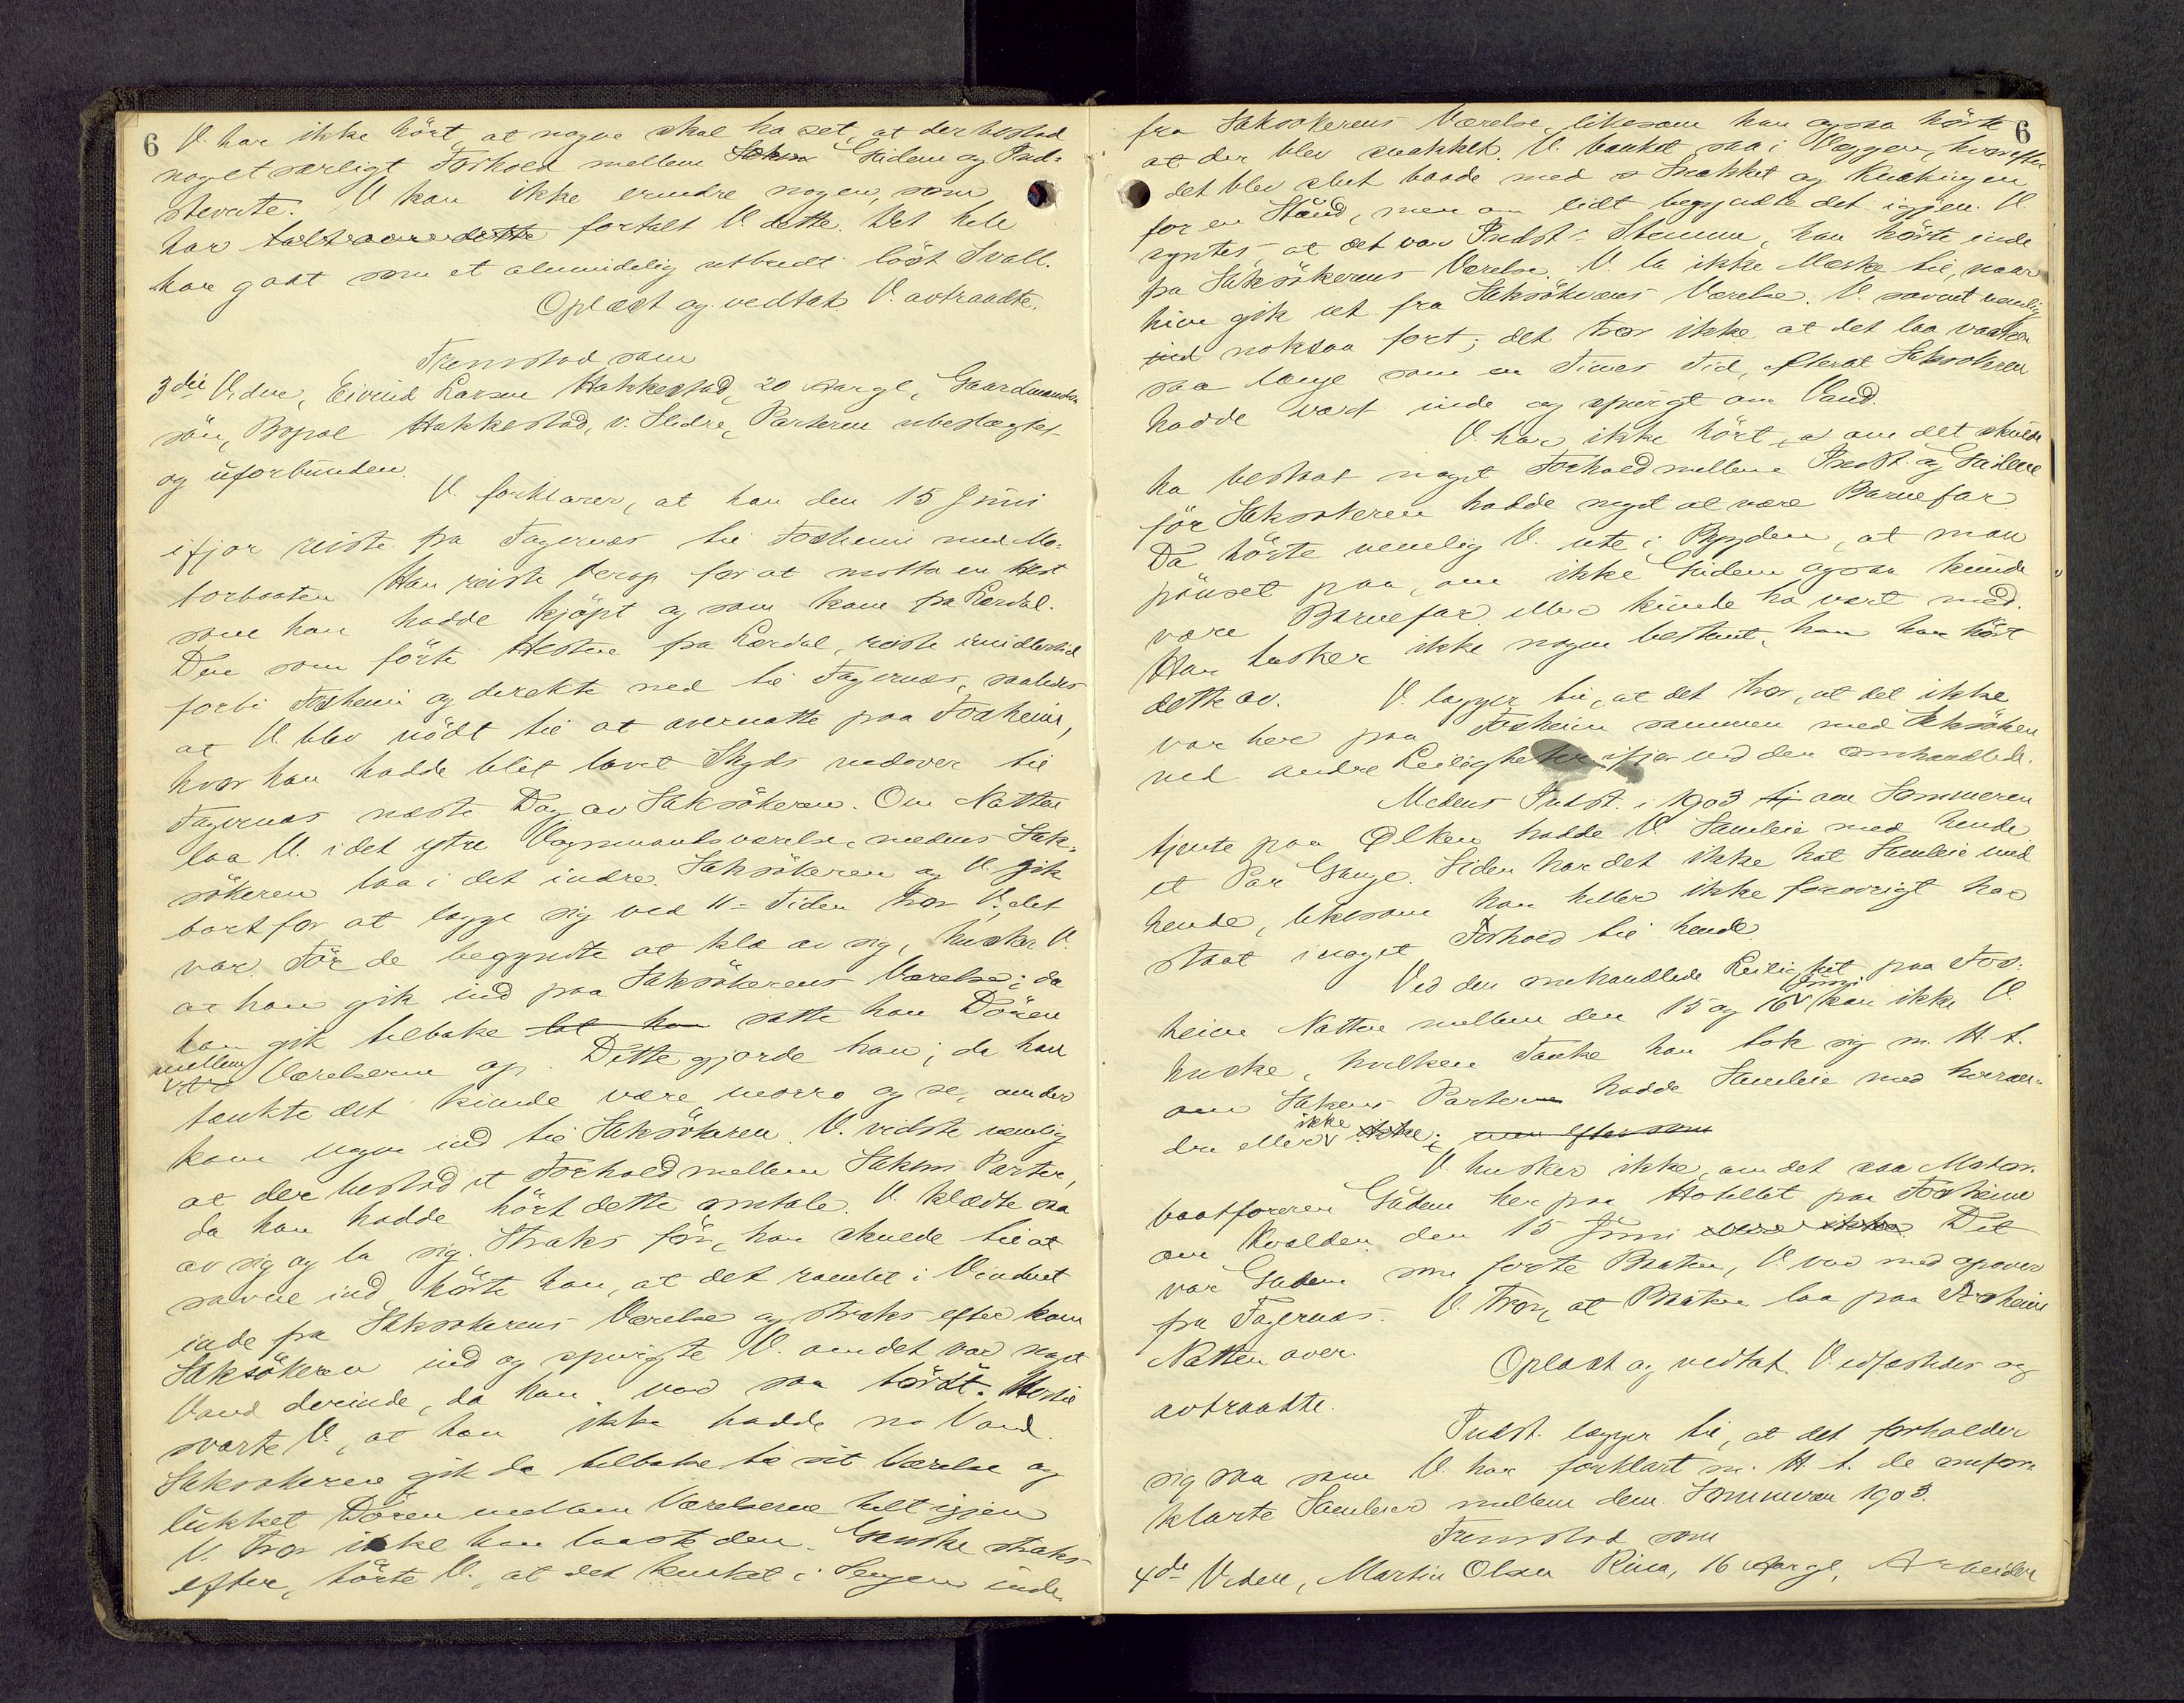 6
V. har ikke hört at nogen skal ha set, at der bestod
noget særligt Forhold mellem Saksö Guden og Ind-
stevnte. V kan ikke erindre nogen, som
har talt om dette fortalt V. dette. Det hele
har gaat som et almindelig utbredt löst Svall.
Oplæst og vedtat. V. avtraadte.
Fremstod som
3die Vidne, Eivind Larsen Hakkestad, 20 Aar gl, Gaardmands
sön, Bopæl Hakkestad, v. Slidre, Parterne ubeslægtet
og uforbunden.
V. forklarer, at han den 15 Juni
ifjor reiste fra Fagernæs til Fosheim med Mo-
torbaaten Han reiste derop for at motta en Hest
som han hadde kjöpt og som kom fra Lærdal.
Den som förte Hesten fra Lærdal, reiste imidlertid
forbi Fosheim og direkte ned til Fagernæs, saaledes
at V. blev nödt til at overnatte paa Fosheim,
hvor han hadde blit lovet Skyds nedover til
Fagernæs næste Dag av Saksökeren. Om Natten
laa V. i det ytre Vognmandsværelse, medens Sak-
sökeren laa i det indre. Saksökeren og V. gik
bort for at lægge sig ved 11-Tiden tror V. det
var. För de begyndte at klæ av sig, husker V.
at han gik ind paa Saksökerens Værelse; da
han gik tilbake lot han satte han Dören
mellem Værelserne op. Dette gjorde han, da han
tænkte det kunde være morro og se, om der
kom nogen ind til Saksökeren. V. vidste nemlig
at der bestod et Forhold mellem Sakens Parter,
da han hadde hört dette omtale. V. klædte saa
av sig og la sig. Straks för, han skulde til at
sovne ind, hörte han, at det ramlet i Vinduet
inde fra Saksökerens Værelse og straks efter kom
Saksökeren ind og spurgte V. om det var noget
Vand derinde, da han var saa törst. Hertil
svarte V., at han ikke hadde no Vand.
Saksökeren gik da tilbake til sit Værelse og
lukket Dören mellem Værelserne helt igjen
V. tror ikke han laaste den. Ganske straks
efter, hörte V., at det knaket i Sengen inde
6
fra Saksökerens Værelse, likesom han ogsaa hörte
at der blev snakket. V. banket saa i Væggen, hvorefter
det blev slut baade med Snakket og Knakingen
for en Stund, men om lidt begyndte det igjen. V.
syntes, at det var Indst's Stemme, han hörte inde
fra Saksökerens Værelse. V. la ikke Mærke til, naar
hun gik ut fra Saksökerens Værelse. V. sovnet nemlig
ind noksaa fort; det tror ikke at det laa vaaken
saa længe som en Times Tid, efterat Saksökeren
hadde vært inde og spurgt om Vand.
V. har ikke hört, at om det skulde
ha bestaat noget Forhold mellem Indst. og Guden
för Saksökeren hadde negtet at være Barnefar
Da hörte nemlig V. ute i Bygden, at man
pönset paa, om ikke Guden ogsaa kunde
være Barnefar eller kunde ha vært med.
Han husker ikke nogen bestemt, han har hört
dette av.
V. lægger til, at det tror, at det ikke
var her paa Fosheim sammen med Saksöken
ved andre Leiligheter ifjor end den omhandlede.
Medens Indst. i 1903 tj om Sommeren
tjente paa Ølken hadde V. Samleie med hende
et Par Gange. Siden har det ikke hat Samleie med
hende, likesom han heller ikke forövrigt har
staat i noget Forhold til hende.
Ved den omhandlede Leilighet paa Fos-
heim Natten mellem den 15 og 16 Juni kan ikke V.
huske, hvilken Tanke han tok sig m. H. t.
om Sakens Parterne hadde Samleie med hveran-
dre eller ikke ikke; men eftersom
V. husker ikke, om det saa Motor-
baatföreren Guden her paa Hotellet paa Fosheim
om Kvælden den 15 Juni eller ikke. Det
var Guden som förte Baaten, V. var med opover
fra Fagernæs. V. tror, at Baaten laa paa Fosheim
Natten over.
Oplæst og vedtat. V. edfæstedes og
avtraadte.
Indst. lægger til, at det forholder
sig saa som V. har forklart m. H. t. de omfor-
klarte Samleier mellem dem Sommeren 1903.
Fremstod som
4de Vidne, Martin Olsen Rina, 16 Aar gl, Arbeider